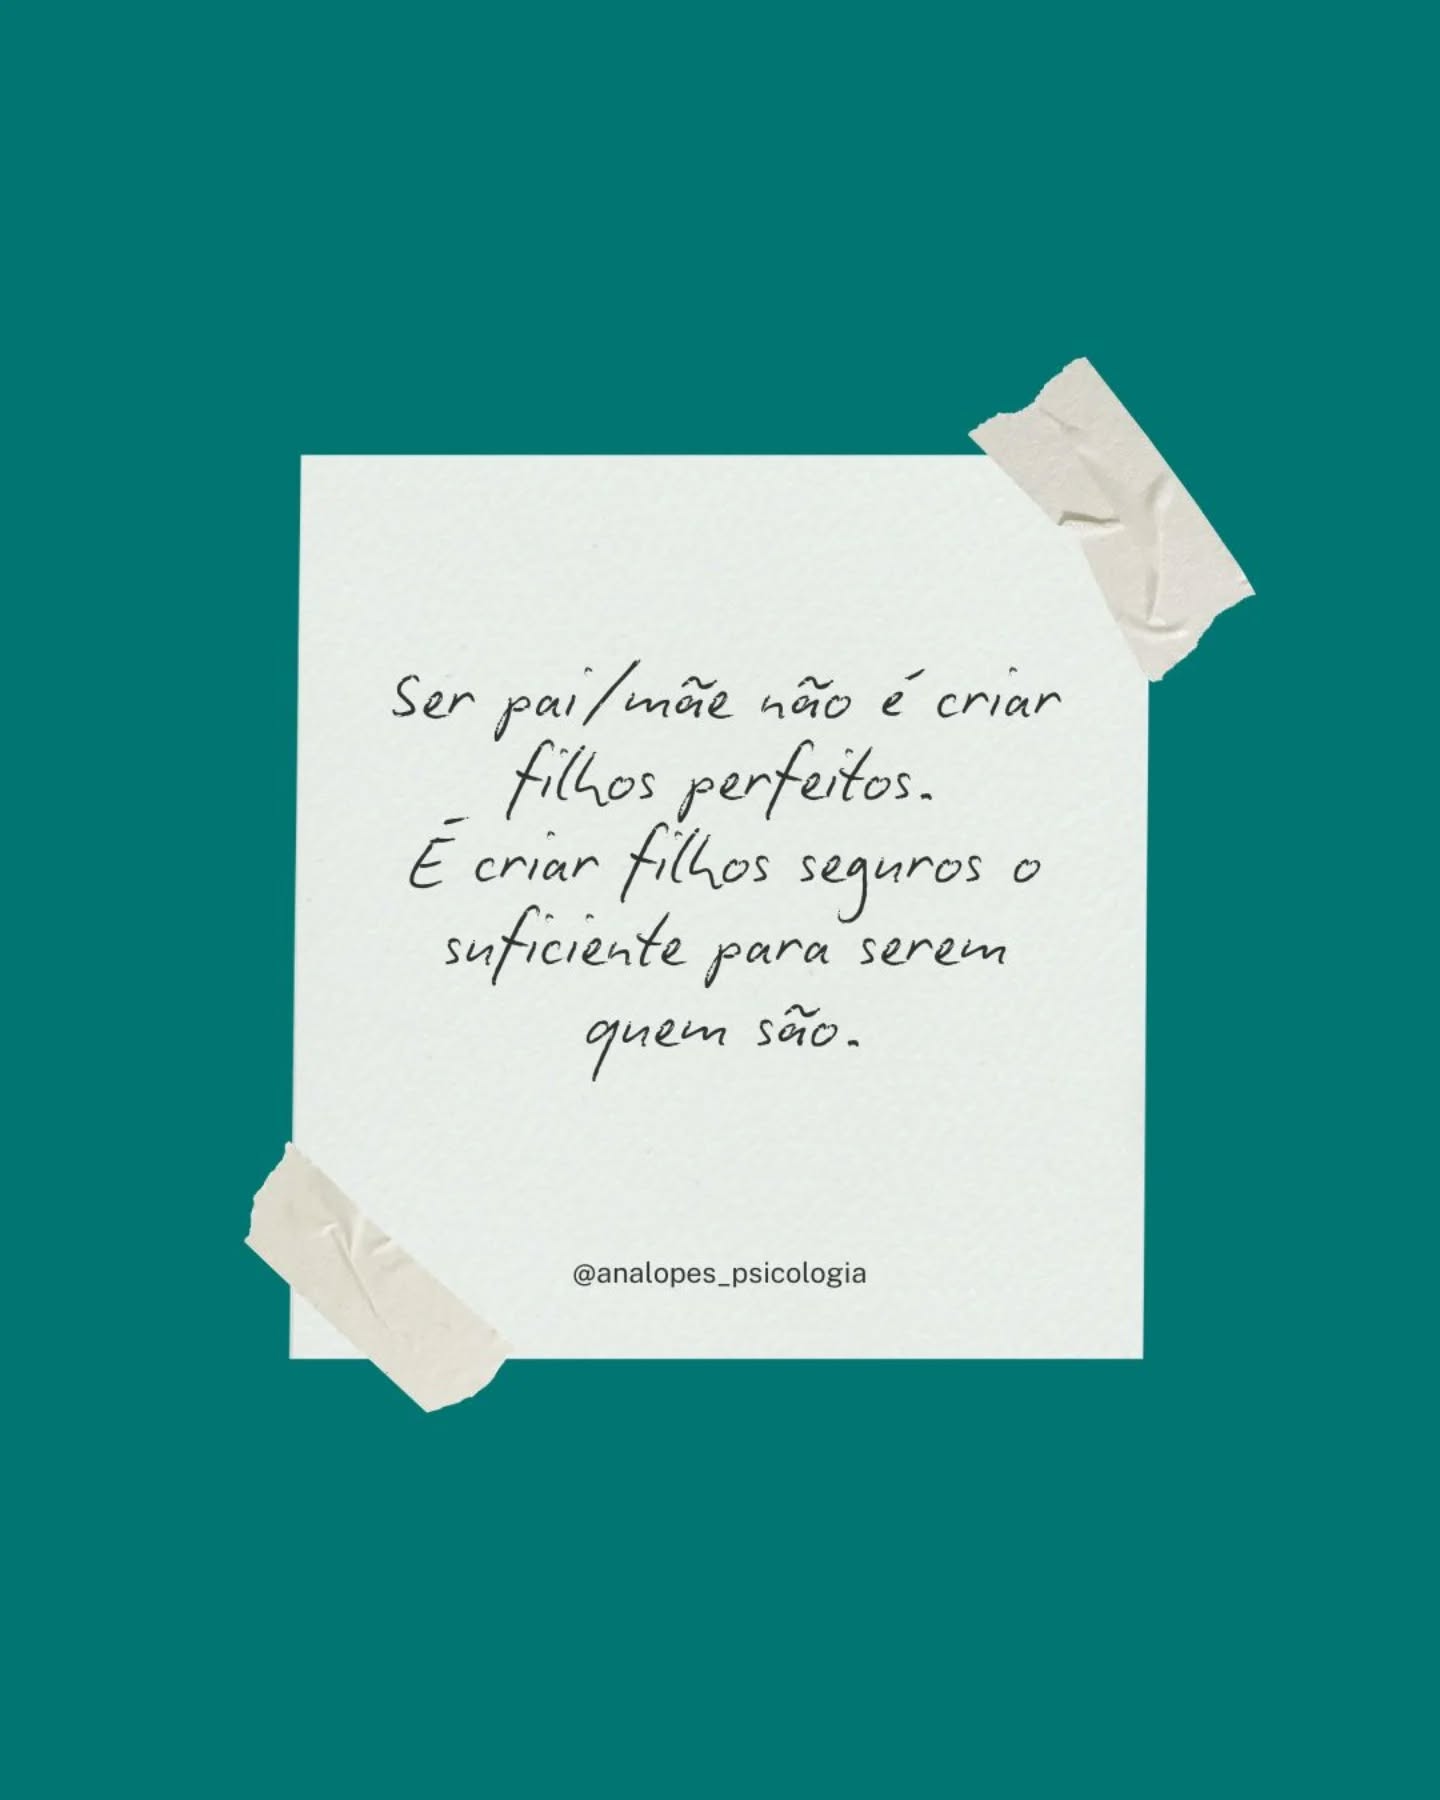 Ser pai/mãe não é criar
filhos perfeitos.
É criar filhos seguros o
suficiente para serem
quem são.
@analopes_psicologia